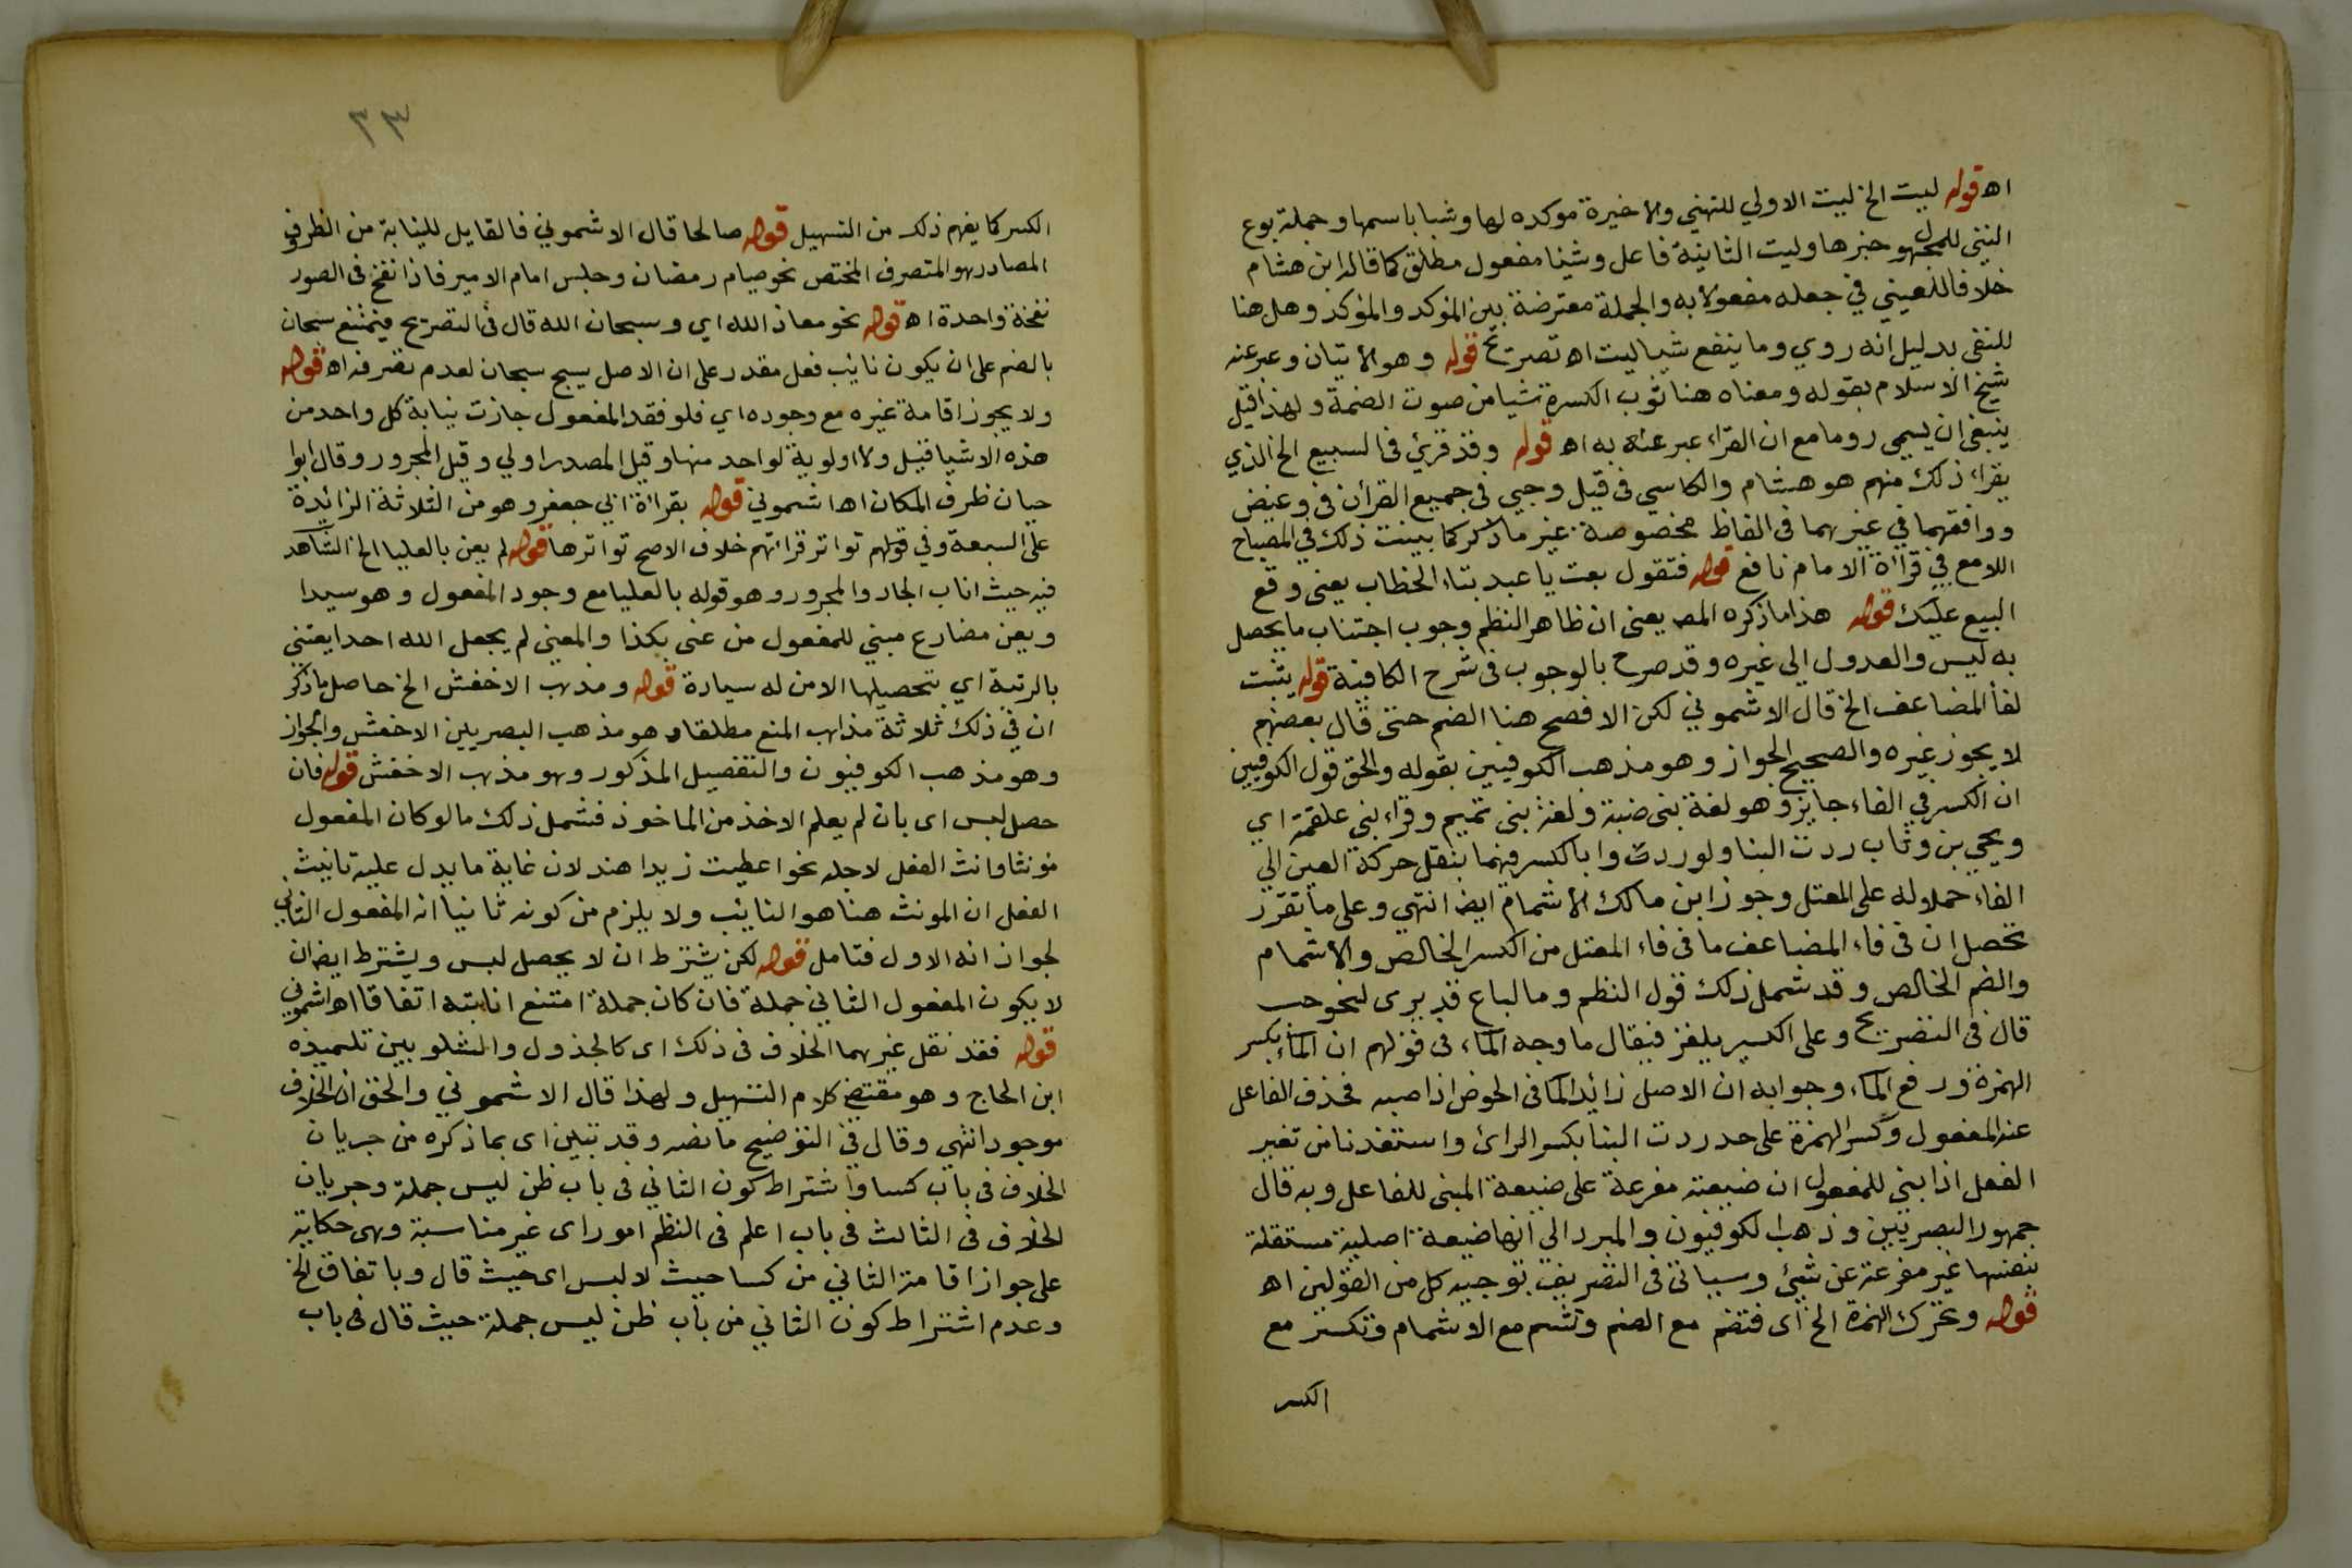 اه قوله ليت الخ ليت الاولي للتمني والاخيرة موكده لها وشبابا اسمها وجملة بوع
النبي للمجهول خبرها وليت الثانية فاعل وشيئا مفعول مطلق كما قاله ابن هشام
خلافا للعيني في جعله مفعولا به والجملة معترضة بين المؤكد والمؤكد وهل هنا
للنفي بدليل انه روي وما ينفع شيا ليت اه تصريح قوله وهو الاتيان وعبر عنه
شيخ الاسلام بقوله ومعناه هنا ثوب الكسرة شيا من صوت الضمة ولهذا قيل
ينبغي ان يسمى روما مع ان القراء عبر عنه به اه قوله وقد قرئ في السبيع الخ الذي
يقراء ذلك منهم هو هشام والكاسي في قيل وجيى في جميع القرأن في وغيض
ووافقهما في غيرهما في الفاظ مخصوصة غير ما ذكر كما بينت ذلك في المصباح
اللامع في قراة الامام نافع قوله فتقول بعت يا عبد بتاء الخطاب يعني وقع
البيع عليك قوله هذا ما ذكره المص يعني ان ظاهر النظم وجوب اجتناب ما يحصل
به ليس والعدول الي غيره وقد صرح بالوجوب في شرح الكافية قوله يثبت
لفأ المضاعف الخ قال الاشموني لكن الافصح هنا الضم حتى قال بعضهم
لا يجوز غيره والصحيح الجواز وهو مذهب الكوفيين بقوله والحق قول الكوفيين
ان الكسر في الفاء جايز وهو لغة بني ضبة ولغة بني تميم وقراء بني علقمة اي
ويحيي بن وثاب ردت الينا ولو ردت وا بالكسر فيهما بنقل حركة العين الي
الفاء حملا وله على المعتل وجوز ابن مالك الاشمام ايضا انتهي وعلى ما تقرر
تحصل ان في فاء المضاعف ما في فاء المعتل من الكسر الخالص والاشمام
والضم الخالص وقد شمل ذلك قول النظم وما لباع قد يرى لنحو حب
قال في التصريح وعلى الكسر يلغز فيقال ما وجه الماء في قولهم ان الماء بكسر
الهمزة ورفع الماء وجوابه ان الاصل زائد الما في الحوض اذا صبه فحذف الفاعل
عنه المفعول وكسر الهمزة على حد ردت الينا بكسر الرائ واستفدنا من تغير
الفعل اذا بني للمفعول ان صيغته مفرعة على صيغة المبنى للفاعل وبه قال
جمهور البصريين وذهب الكوفيون والمبرد الي انها صيغة اصلية مستقلة
بنفسها غير مفرعة عن شيئ وسياتي في التصريف توجيه كل من القولين اه
قوله وتحرك الهمزة الخ اى فتضم مع الضم وتشم مع الاشمام وتكسر مع
الكسر
٣٣
الكسر كما يفهم ذلك من التسهيل قوله صالحا قال الاشموني فالقابل للنيابة من الظروف
المصادر هو المتصرف المختص نحو صيام رمضان وجلس امام الامير فاذا نفخ في الصور
نفخة واحدة اه قوله نحو معاذ الله اي وسبحان الله قال في التصريح فيمتنع سبحان
بالضم على ان يكون نائب فعل مقدر على ان الاصل يسبح سبحان لعدم تصرفه اه قوله
ولا يجوز اقامة غيره مع وجوده اي فلو فقد المفعول جازت نيابة كل واحد من
هذه الاشيا قيل ولا اولوية لواحد منها وقيل المصدر اولي وقيل المجرور وقال ابوا
حيان ظرف المكان اه اشموني قوله بقراة ابي جعفر وهو من الثلاثة الزائدة
على السبعة وفي قولهم تواتر قرائتهم خلاف الاصح تواترها قوله لم يعن بالعليا الخ الشاهد
فيه حيث اناب الجار والمجرور وهو قوله بالعليا مع وجود المفعول وهو سيدا
ويعن مضارع مبني للمفعول من عنى بكذا والمعني لم يجعل الله احدا يعتني
بالرتبة اي بتحصيلها الا من له سيادة قوله ومذهب الاخفش الخ حاصل ما ذكر
ان في ذلك ثلاثة مذاهب المنع مطلقا وهو مذهب البصريين الاخفش والجواز
وهو مذهب الكوفيون والتفصيل المذكور وهو مذهب الاخفش قوله فان
حصل لبس اى بان لم يعلم الاخذ من الماخوذ فشمل ذلك ما لو كان المفعول
مونثا وانث الفعل لاجله نحو اعطيت زيدا هند لان غاية ما يدل عليه تانيث
الفعل ان المونث هنا هو النائب ولا يلزم من كونه ثانيا انه المفعول الثاني
لجواز انه الاول فتامل قوله لكن يشترط ان لا يحصل لبس ويشترط ايضا ان
لا يكون المفعول الثاني جملة فان كان جملة امتنع انابته اتفاقا اه اشموني
قوله فقد نقل غيرهما الخلاف في ذلك اى كالجذول والشلوبين تلميذه
ابن الحاج وهو مقتضى كلام التسهيل ولهذا قال الاشموني والحق ان الخلاف
موجود انتهي وقال في التوضيح ما نصه وقد تبين اى بما ذكره من جريان
الخلاف في باب كسا واشتراط كون الثاني في باب ظن ليس جملة وجريان
الخلاف في الثالث في باب اعلم في النظم امور اى غير مناسبة وهي حكاية
على جواز اقامة الثاني من كسا حيث لا لبس اى حيث قال وباتفاق الخ
وعدم اشتراط كون الثاني من باب ظن ليس جملة حيث قال في باب